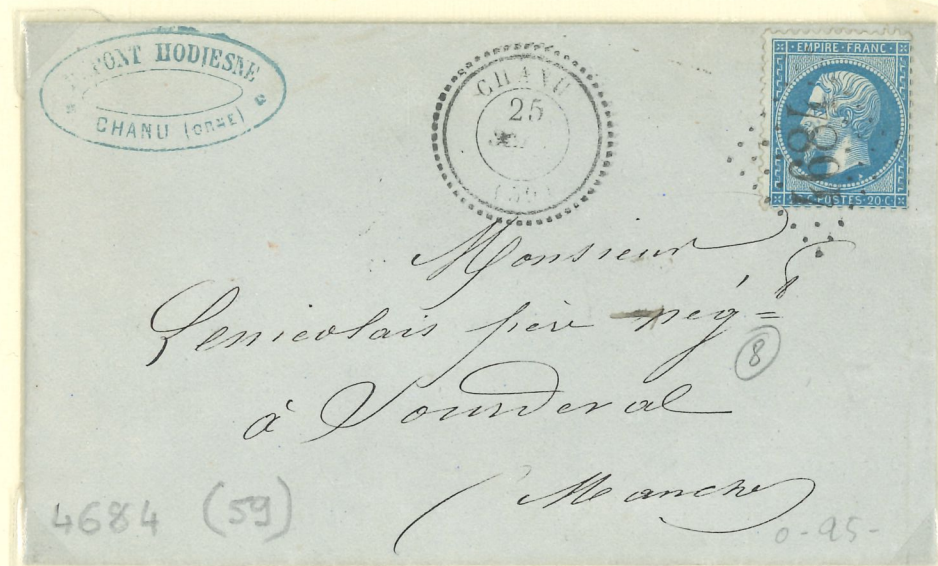 PONT HODIESNE
CHANU (ORNE)
CHANU
25
(59)
EMPIRE FRANC
4684
POSTES 20 C
Monsieur
Lenicolais père nég=t
à Sourdeval
(Manche)
8
4684 (59)
0-95-